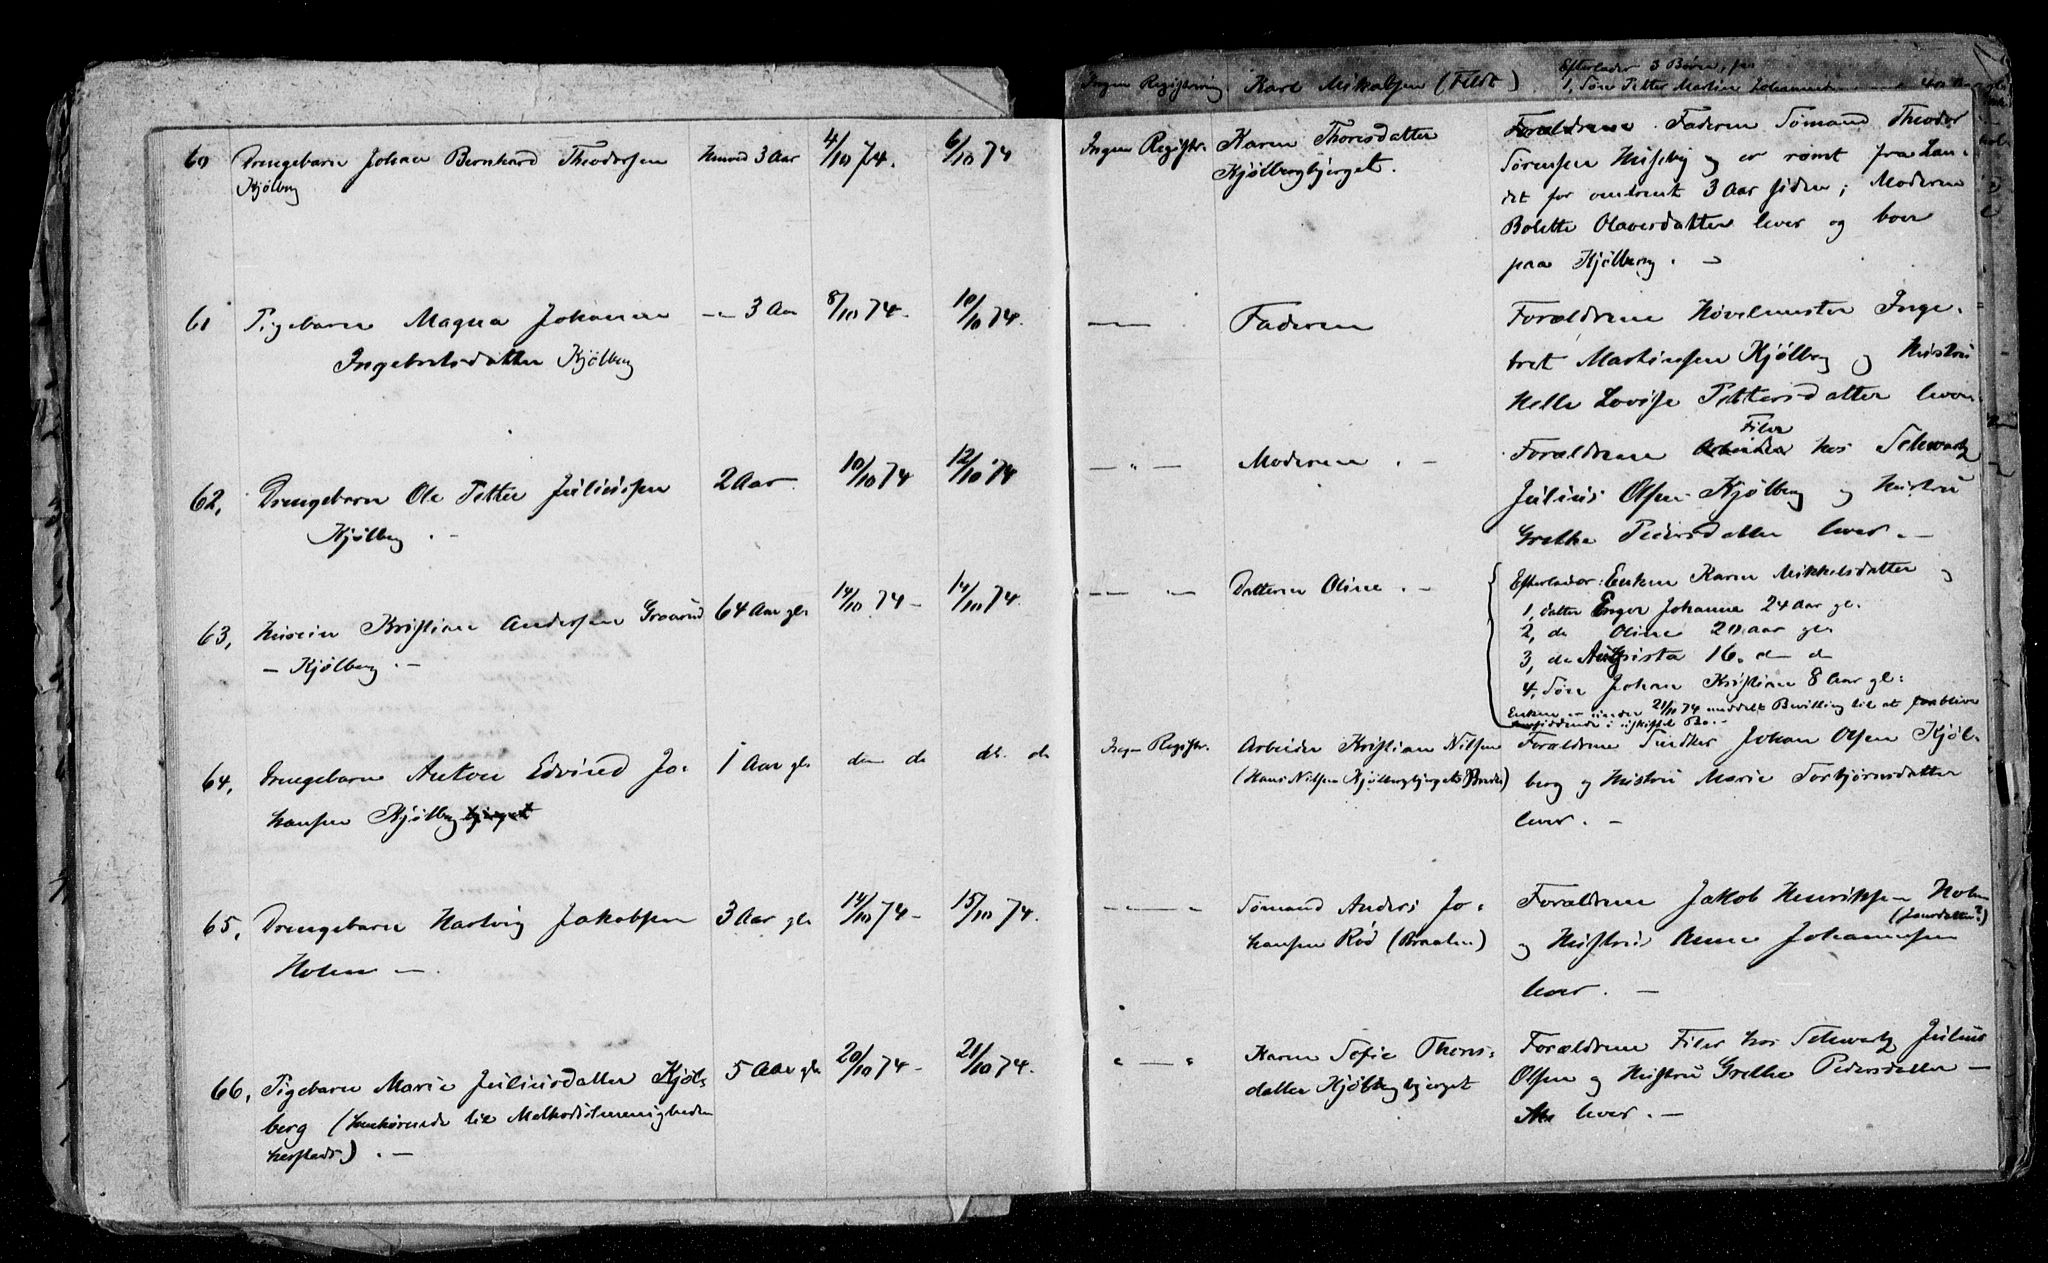 Ingen Registrering Karl Mikalsen (Feldt) Efterlader 3 Børn,
1, Søn Petter Martin Johannes
60 Drengebarn Johan Bernhard Theodorsen
Kjølberg
henved 3 Aar 4/10 74. 6/10 74
Ingen Registr. Karen Thorisdatter
Kjølbergbjerget.
Forældrene. Faderen Sømand Theodor
Sørensen Huseby og er rømt fra Lan-
det for omtrent 3 Aar siden; Moderen
Bolette Olavesdatter lever og boer
paa Kjølberg. -
61 Pigebarn Magna Johanne
Ingebretsdatter Kjølberg
-"- 3 Aar 8/10 74. 10/10 74.
Faderen
Forældrene Høvelmester Inge-
bret Martinsen Kjølberg og Hustru
Helle Lovise Pettersdatter lever
62, Drengebarn Ole Petter Juliussen
Kjølberg. -
2 Aar 10/10 74 12/10 74
- " - Moderen. -
Filer
Forældrene Arbeider hos Schwartz
Julius Olsen Kjølberg og Hustru
Grethe Pedersdatter lever. -
63, Kristian Andersen Graarud
- Kjølberg. -
64 Aar gl. 14/10 74 - 14/10 74.
Datteren Oline. -
Efterlader: Enken Karen Mikkelsdatter og
1, datter Inger Johanne 24 Aar gl.
2, do Oline 20 Aar gl.
3, do Augusta 16. do do
4, Søn Johan Kristian 8 Aar gl.
Enken er under 21/10 74 meddelt Bevilling til at forblive
hensiddende i uskiftet Bo. -
64, Drengebarn Anton Edvind Jo-
hansen Kjølberg bjerget
1 Aar gl. den do do. do
Ingen Registr. Arbeider Kristian Nilsen
(Hans Nilsen Kjølbergbjergets Broder)
Forældrene Snedker Johan Olsen Kjøl-
berg og Hustru Marie Torbjørnsdatter
lever. -
65, Drengebarn Hartvig Jakobsen
Holm -
3 Aar gl. 14/10 74 - 15/10 74.
Sømand Anders Jo-
hansen Rød (Braaten)
Forældrene Jakob Henriksen Holm
(Jansdatter?)
og Hustru Anne Johannesen
lever. -
66, Pigebarn Marie Juliusdatter Kjøl-
berg (henhørende til Methodistmenigheden
hersteds). -
5 Aar gl. 20/10 74 - 21/10 74.
" - " Karen Sofie Thoris-
datter Kjølbergbjerget
Forældrene Filer hos Schwartz Julius
Olsen og Hustru Grethe Pedersdatter -
lever. -